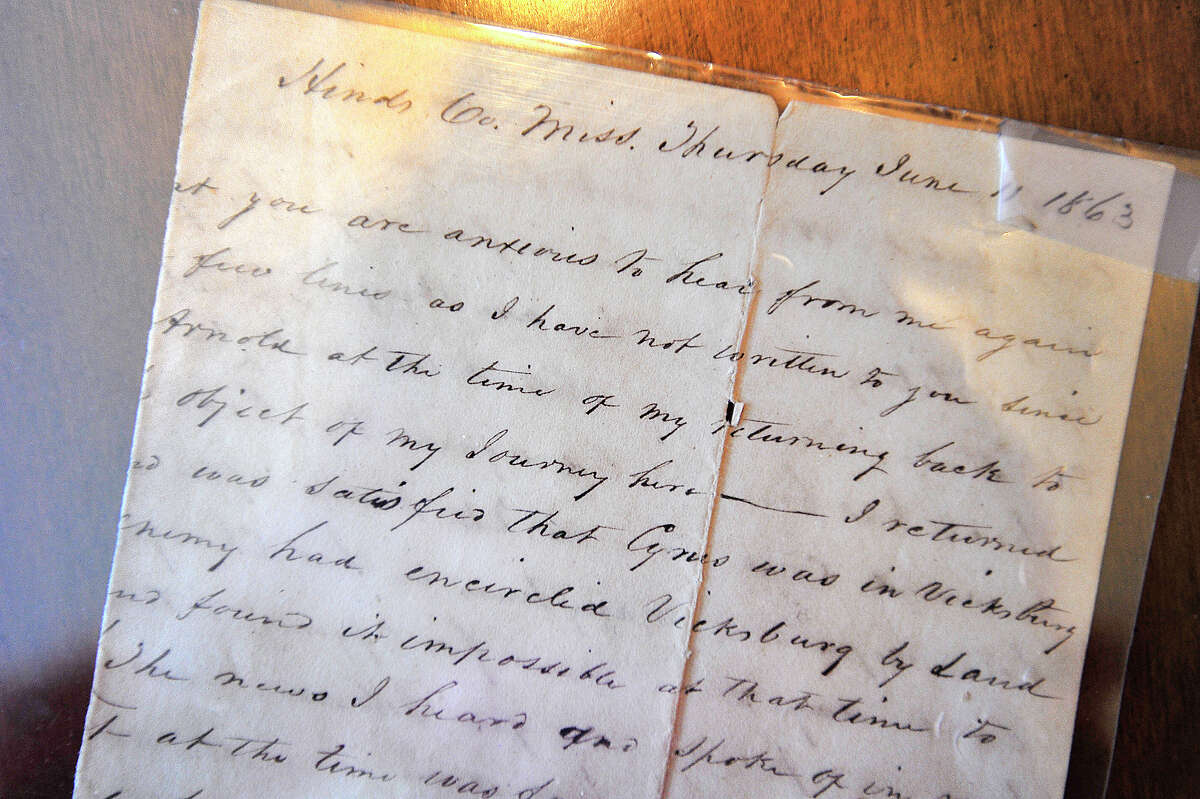 Hinds Co. Miss. Thursday June 11 1863
you are anxious to hear from me again
few lines as I have not written to you since
Arnold at the time of my returning back to
object of my Journey here — I returned
was satisfied that Cyrus was in Vicksburg
enemy had encircled Vicksburg by Land
found it impossible at that time to
The news I heard and spoke of in
at the time was